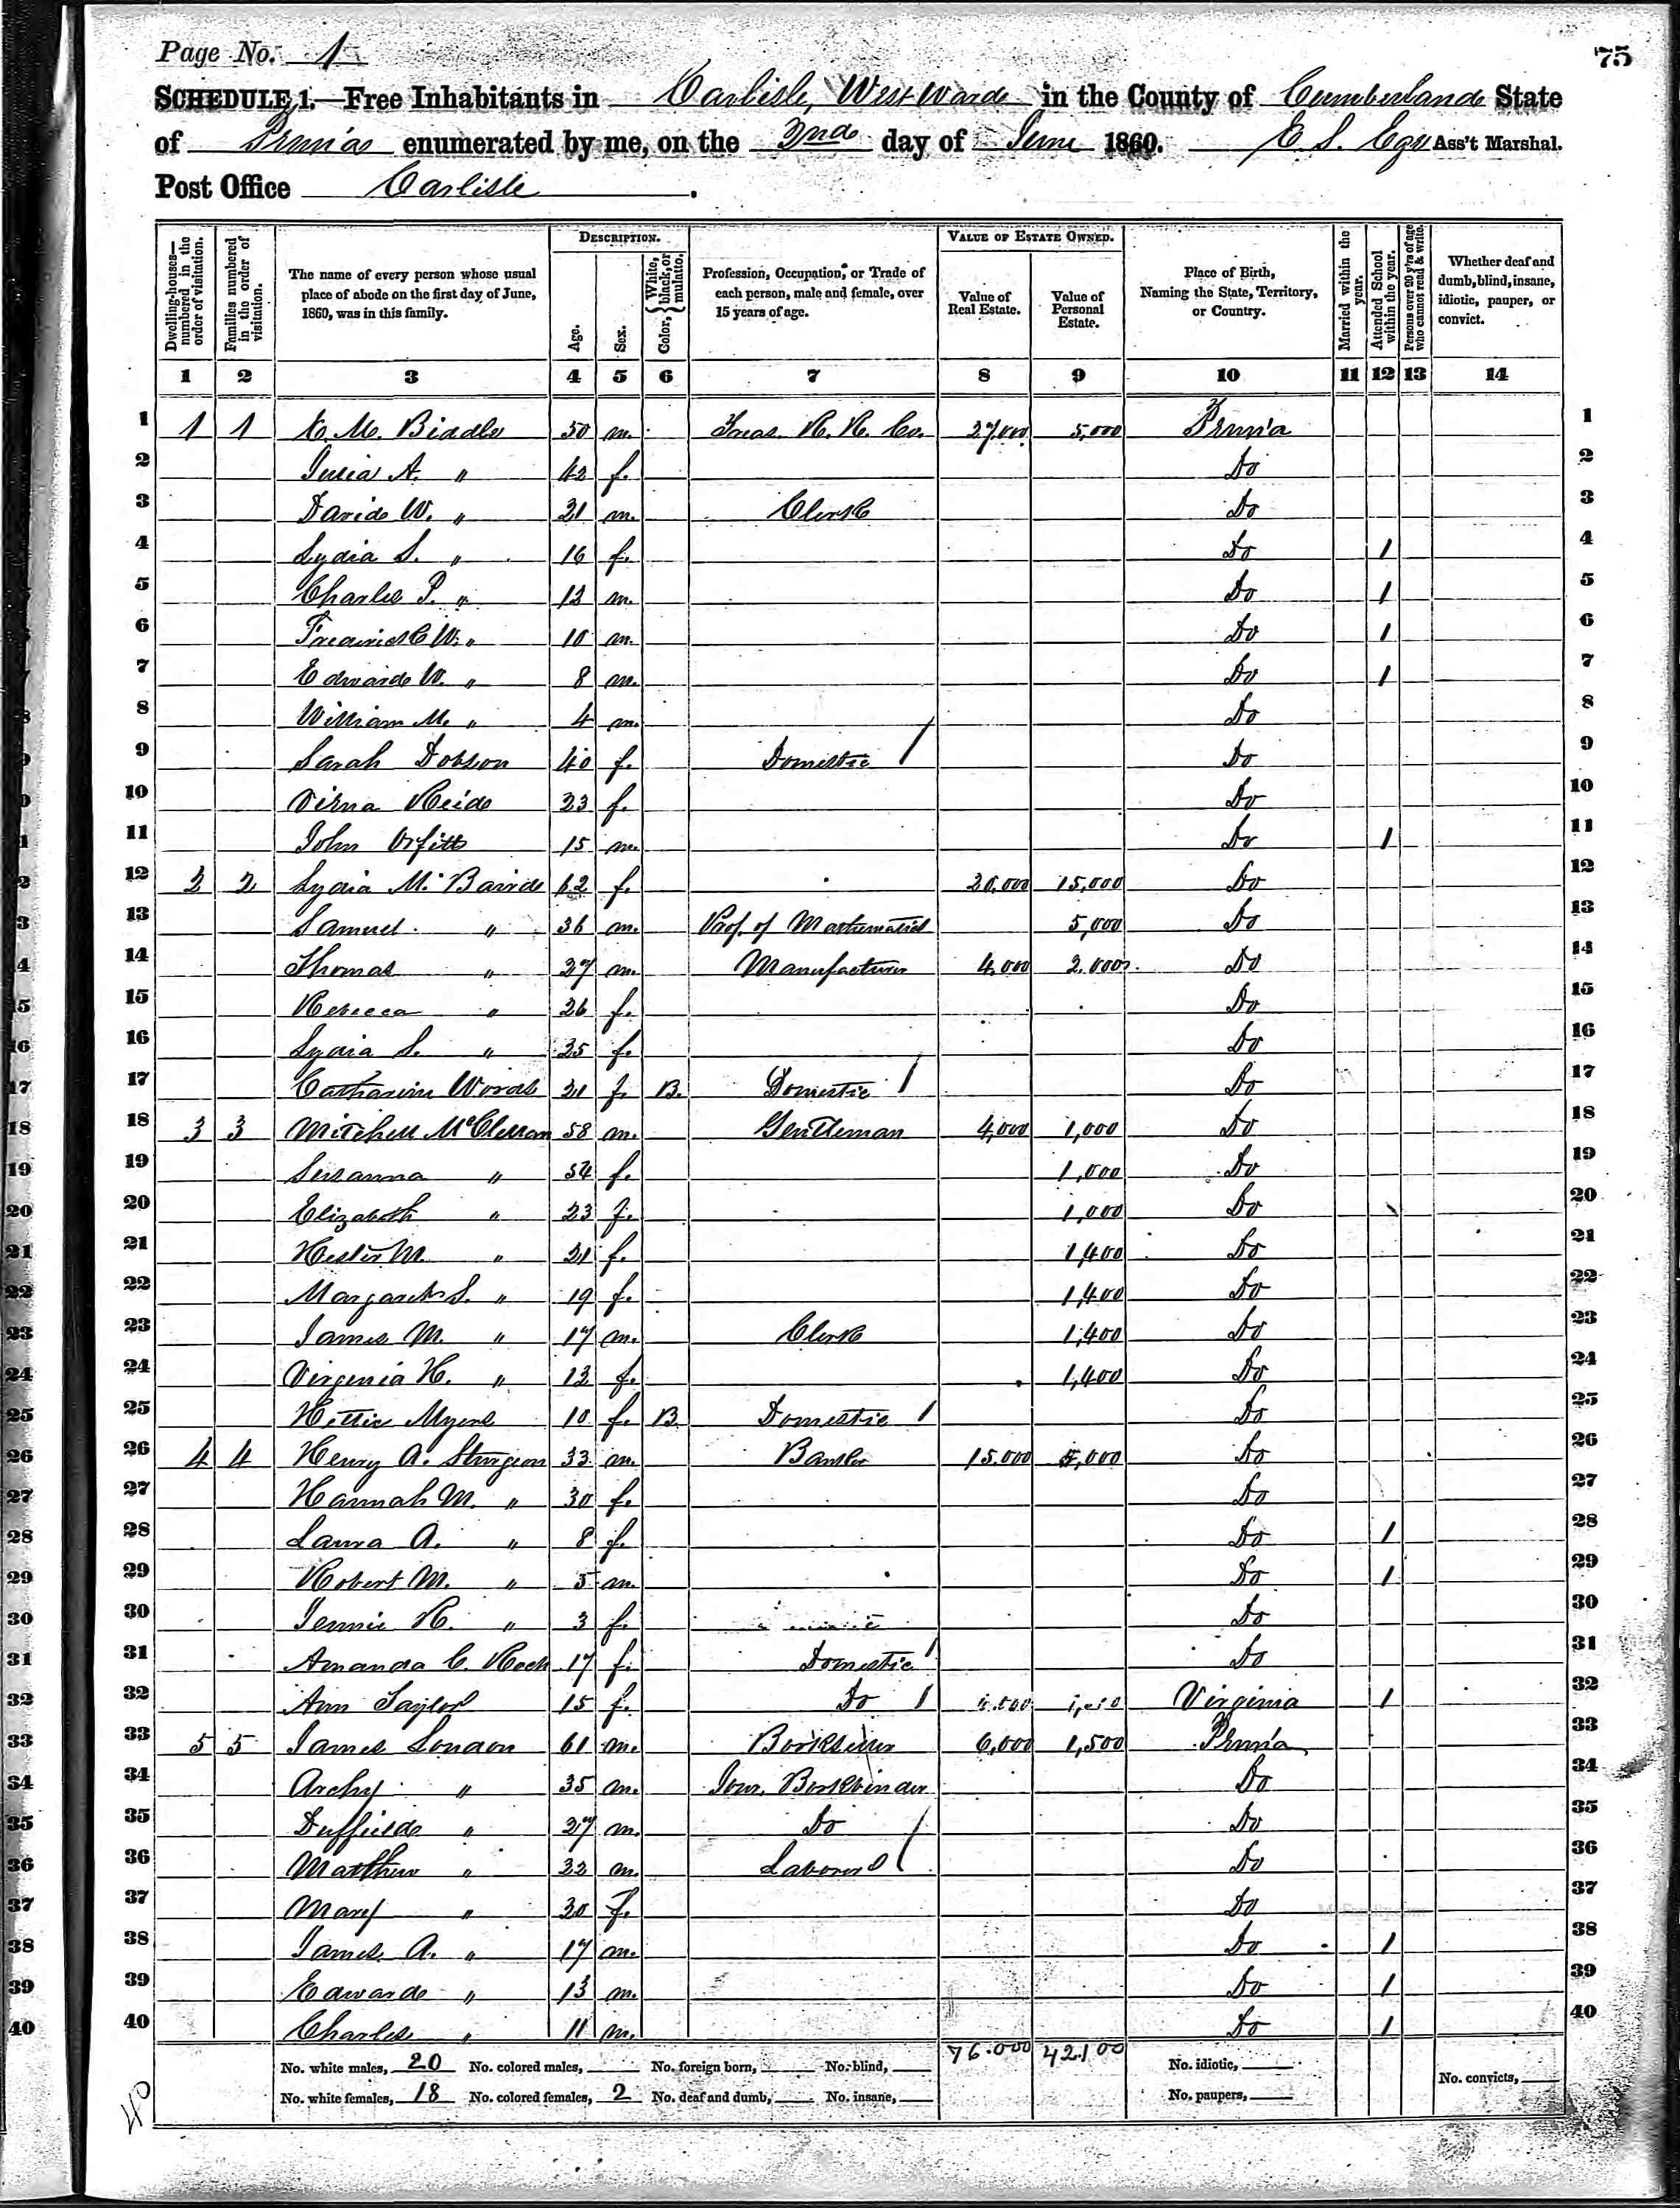 Page No. 1
75
SCHEDULE 1.—Free Inhabitants in Carlisle, West Ward in the County of Cumberland State
of Penn'a enumerated by me, on the 2nd day of June 1860. E. S. Ege Ass't Marshal.
Post Office Carlisle.
Dwelling-houses—numbered in the order of visitation.
Families numbered in the order of visitation.
The name of every person whose usual place of abode on the first day of June, 1860, was in this family.
DESCRIPTION.
Age.
Sex.
Color, White, black, or mulatto.
Profession, Occupation, or Trade of each person, male and female, over 15 years of age.
VALUE OF ESTATE OWNED.
Value of Real Estate.
Value of Personal Estate.
Place of Birth, Naming the State, Territory, or Country.
Married within the year.
Attended School within the year.
Persons over 20 y'rs of age who cannot read & write.
Whether deaf and dumb, blind, insane, idiotic, pauper, or convict.
1 2 3 4 5 6 7 8 9 10 11 12 13 14
1 1 1 M. Biddle 50 m. Treas. R. R. Co. 27,000 5,000 Penn'a 1
2 Julia A. " 42 f. Do 2
3 David W. " 21 m. Clerk Do 3
4 Lydia S. " 16 f. Do 1 4
5 Charles P. " 12 m. Do 1 5
6 Frederick W. " 10 m. Do 1 6
7 Edward W. " 8 m. Do 1 7
8 William M. " 4 m. Do 8
9 Sarah Dobson 40 f. Domestic / Do 9
10 Reid 23 f. Do 10
11 John 15 m. Do 1 11
12 2 2 Lydia M. Baird 62 f. 15,000 Do 12
13 Samuel " 36 m. Prof. of Mathematics 5,000 Do 13
14 Thomas " 27 m. Manufacturer 4,000 2,000 Do 14
15 Rebecca " 26 f. Do 15
16 Lydia S. " 25 f. Do 16
17 Catharine Words 21 f. B. Domestic / Do 17
18 3 3 Mitchell McClellan 58 m. Gentleman 4,000 1,000 Do 18
19 Susanna " 54 f. 1,000 Do 19
20 Elizabeth " 23 f. 1,000 Do 20
21 Hester M. " 21 f. 1,400 Do 21
22 Margaret S. " 19 f. 1,400 Do 22
23 James M. " 17 m. Clerk 1,400 Do 23
24 Virginia H. " 12 f. 1,400 Do 24
25 Hettie Myers 10 f. B. Domestic / Do 25
26 4 4 Henry A. Sturgeon 33 m. Banker 15,000 5,000 Do 26
27 Hannah M. " 30 f. Do 27
28 Laura A. " 8 f. Do 1 28
29 Robert M. " 5 m. Do 1 29
30 Jennie R. " 3 f. Do 30
31 Amanda C. 17 f. Domestic / Do 31
32 Ann Taylor 15 f. Do / Virginia 1 32
33 5 5 James Loudon 61 m. Bookseller 6,000 1,500 Penn'a 33
34 Archy " 35 m. Jour. Bookbinder Do 34
35 Duffield " 27 m. Do / Do 35
36 Matthew " 22 m. Laborer / Do 36
37 Mary " 30 f. Do 37
38 James A. " 17 m. Do 1 38
39 Edward " 13 m. Do 1 39
40 Charles " 11 m. Do 1 40
76.000 42.100
No. white males, 20 No. colored males, No. foreign born, No. blind, No. idiotic,
No. white females, 18 No. colored females, 2 No. deaf and dumb, No. insane, No. paupers, No. convicts,
40